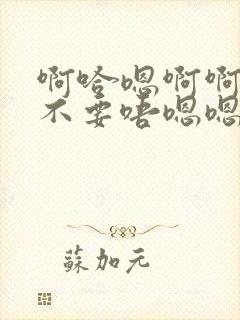 啊哈嗯啊啊
不要唔嗯嗯
蘇加元